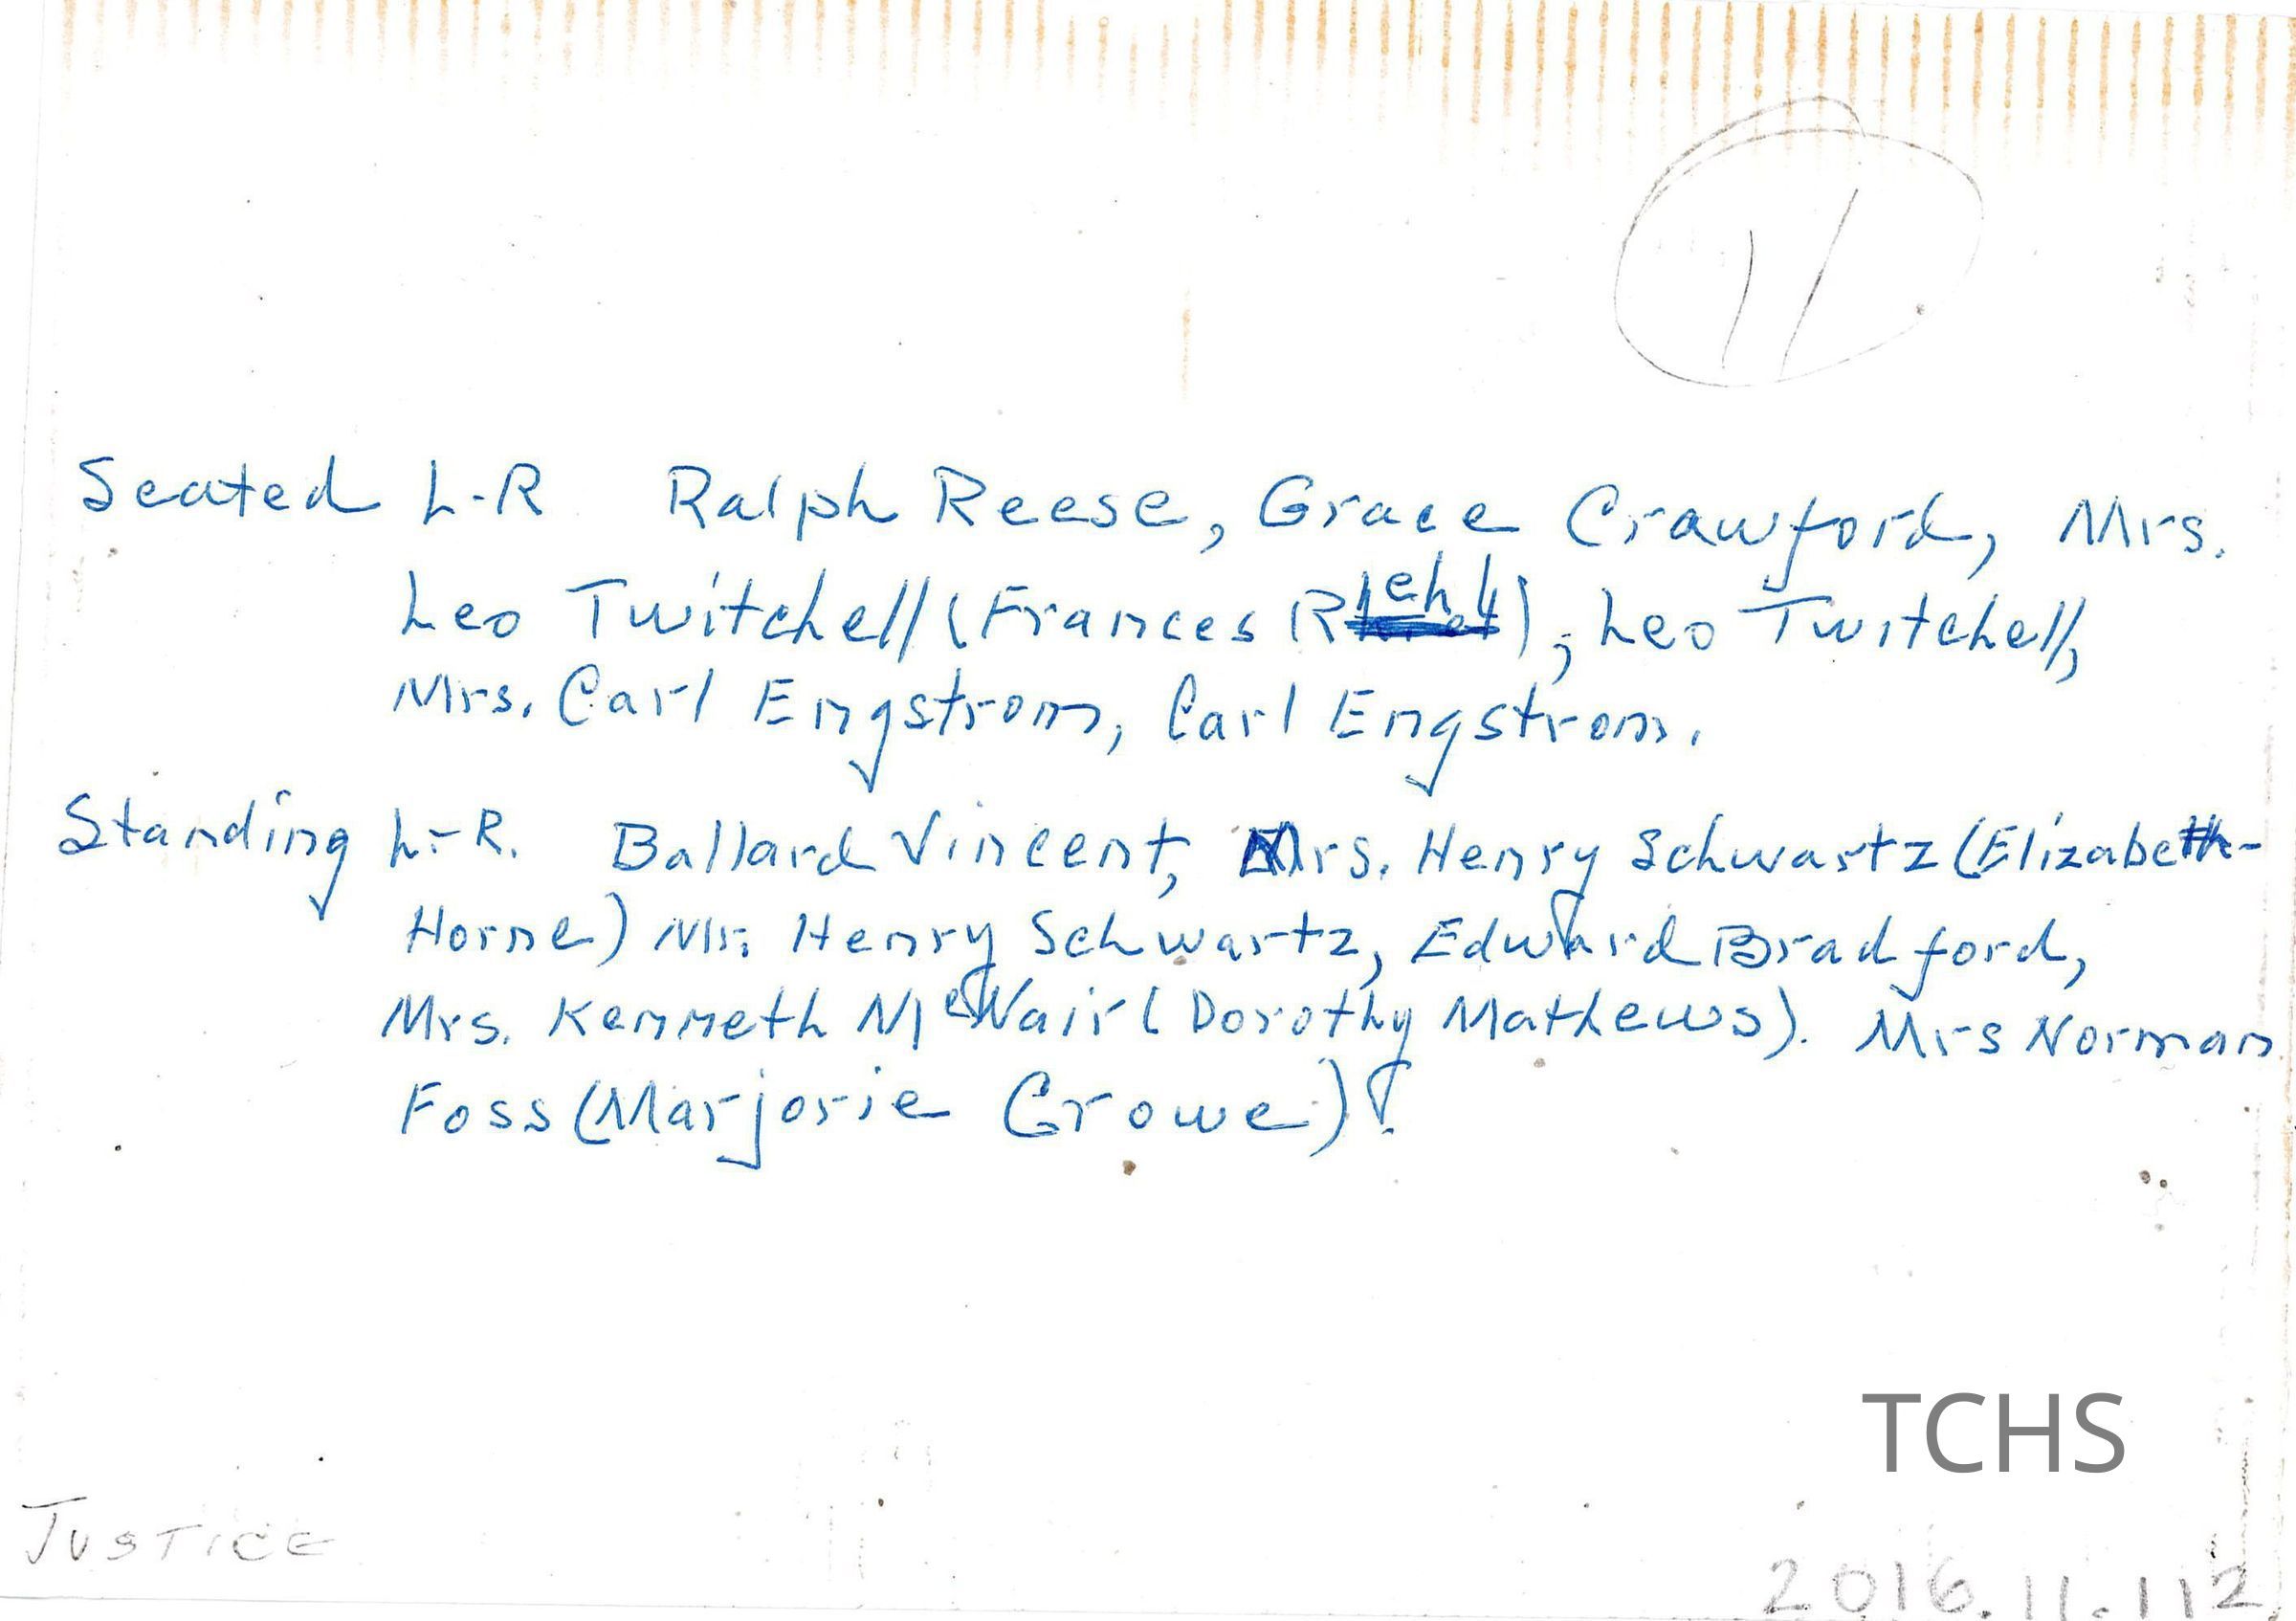 11
Seated L-R Ralph Reese, Grace Crawford, Mrs.
Leo Twitchell (Frances ), Leo Twitchell,
Mrs. Carl Engstrom, Carl Engstrom.
Standing L-R. Ballard Vincent, Mrs. Henry Schwartz (Elizabeth-
Horne) Mr. Henry Schwartz, Edward Bradford,
Mrs. Kenneth McNair (Dorothy Mathews). Mrs Norman
Foss (Marjorie Crowe).
TCHS
JUSTICE
2016.11.112